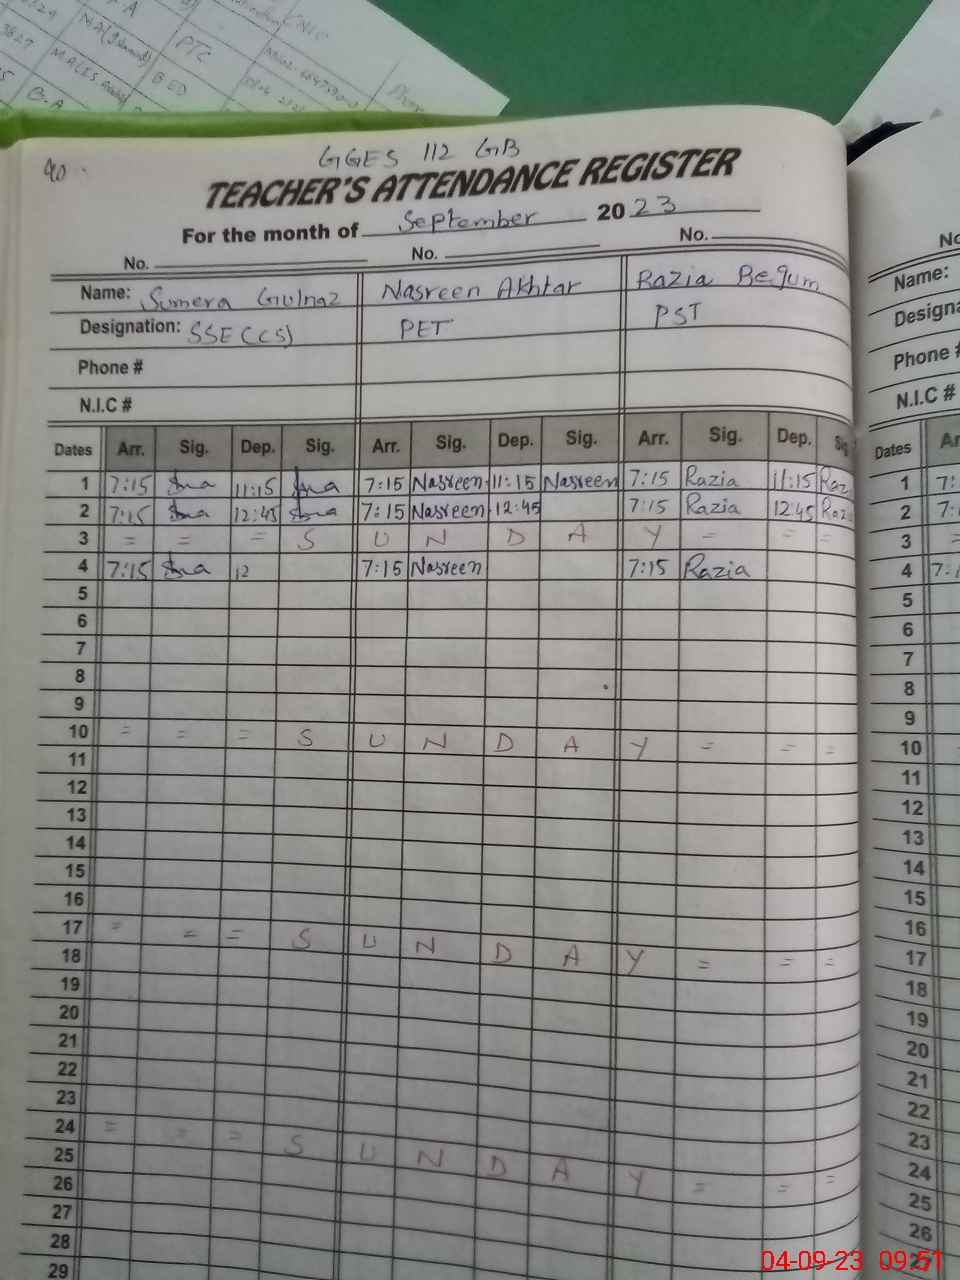 B.A
MA(Islamiat)
PTC
B ED
CNIC
Phone
90
GGES 112 GB
TEACHER'S ATTENDANCE REGISTER
For the month of September 2023
No. No. No.
Name: Sumera Gulnaz Nasreen Akhtar Razia Begum
Designation: SSE(CS) PET PST
Phone #
N.I.C #
Dates Arr. Sig. Dep. Sig. Arr. Sig. Dep. Sig. Arr. Sig. Dep. Sig
1 7:15 11:15 7:15 Nasreen 11:15 Nasreen 7:15 Razia 11:15 Raz
2 7:15 12:45 7:15 Nasreen 12:45 7:15 Razia 12:45 Raz
3 = = = S U N D A Y = = =
4 7:15 12 7:15 Nasreen 7:15 Razia
5
6
7
8
9
10 = = = S U N D A Y = = =
11
12
13
14
15
16
17 = = = S U N D A Y = = =
18
19
20
21
22
23
24 = = = S U N D A Y = = =
25
26
27
28
29
No
Name:
Designa
Phone #
N.I.C #
Dates Ar
1 7:
2 7:
3 =
4 7:1
5
6
7
8
9
10
11
12
13
14
15
16
17
18
19
20
21
22
23
24
25
26
04-09-23 09:51